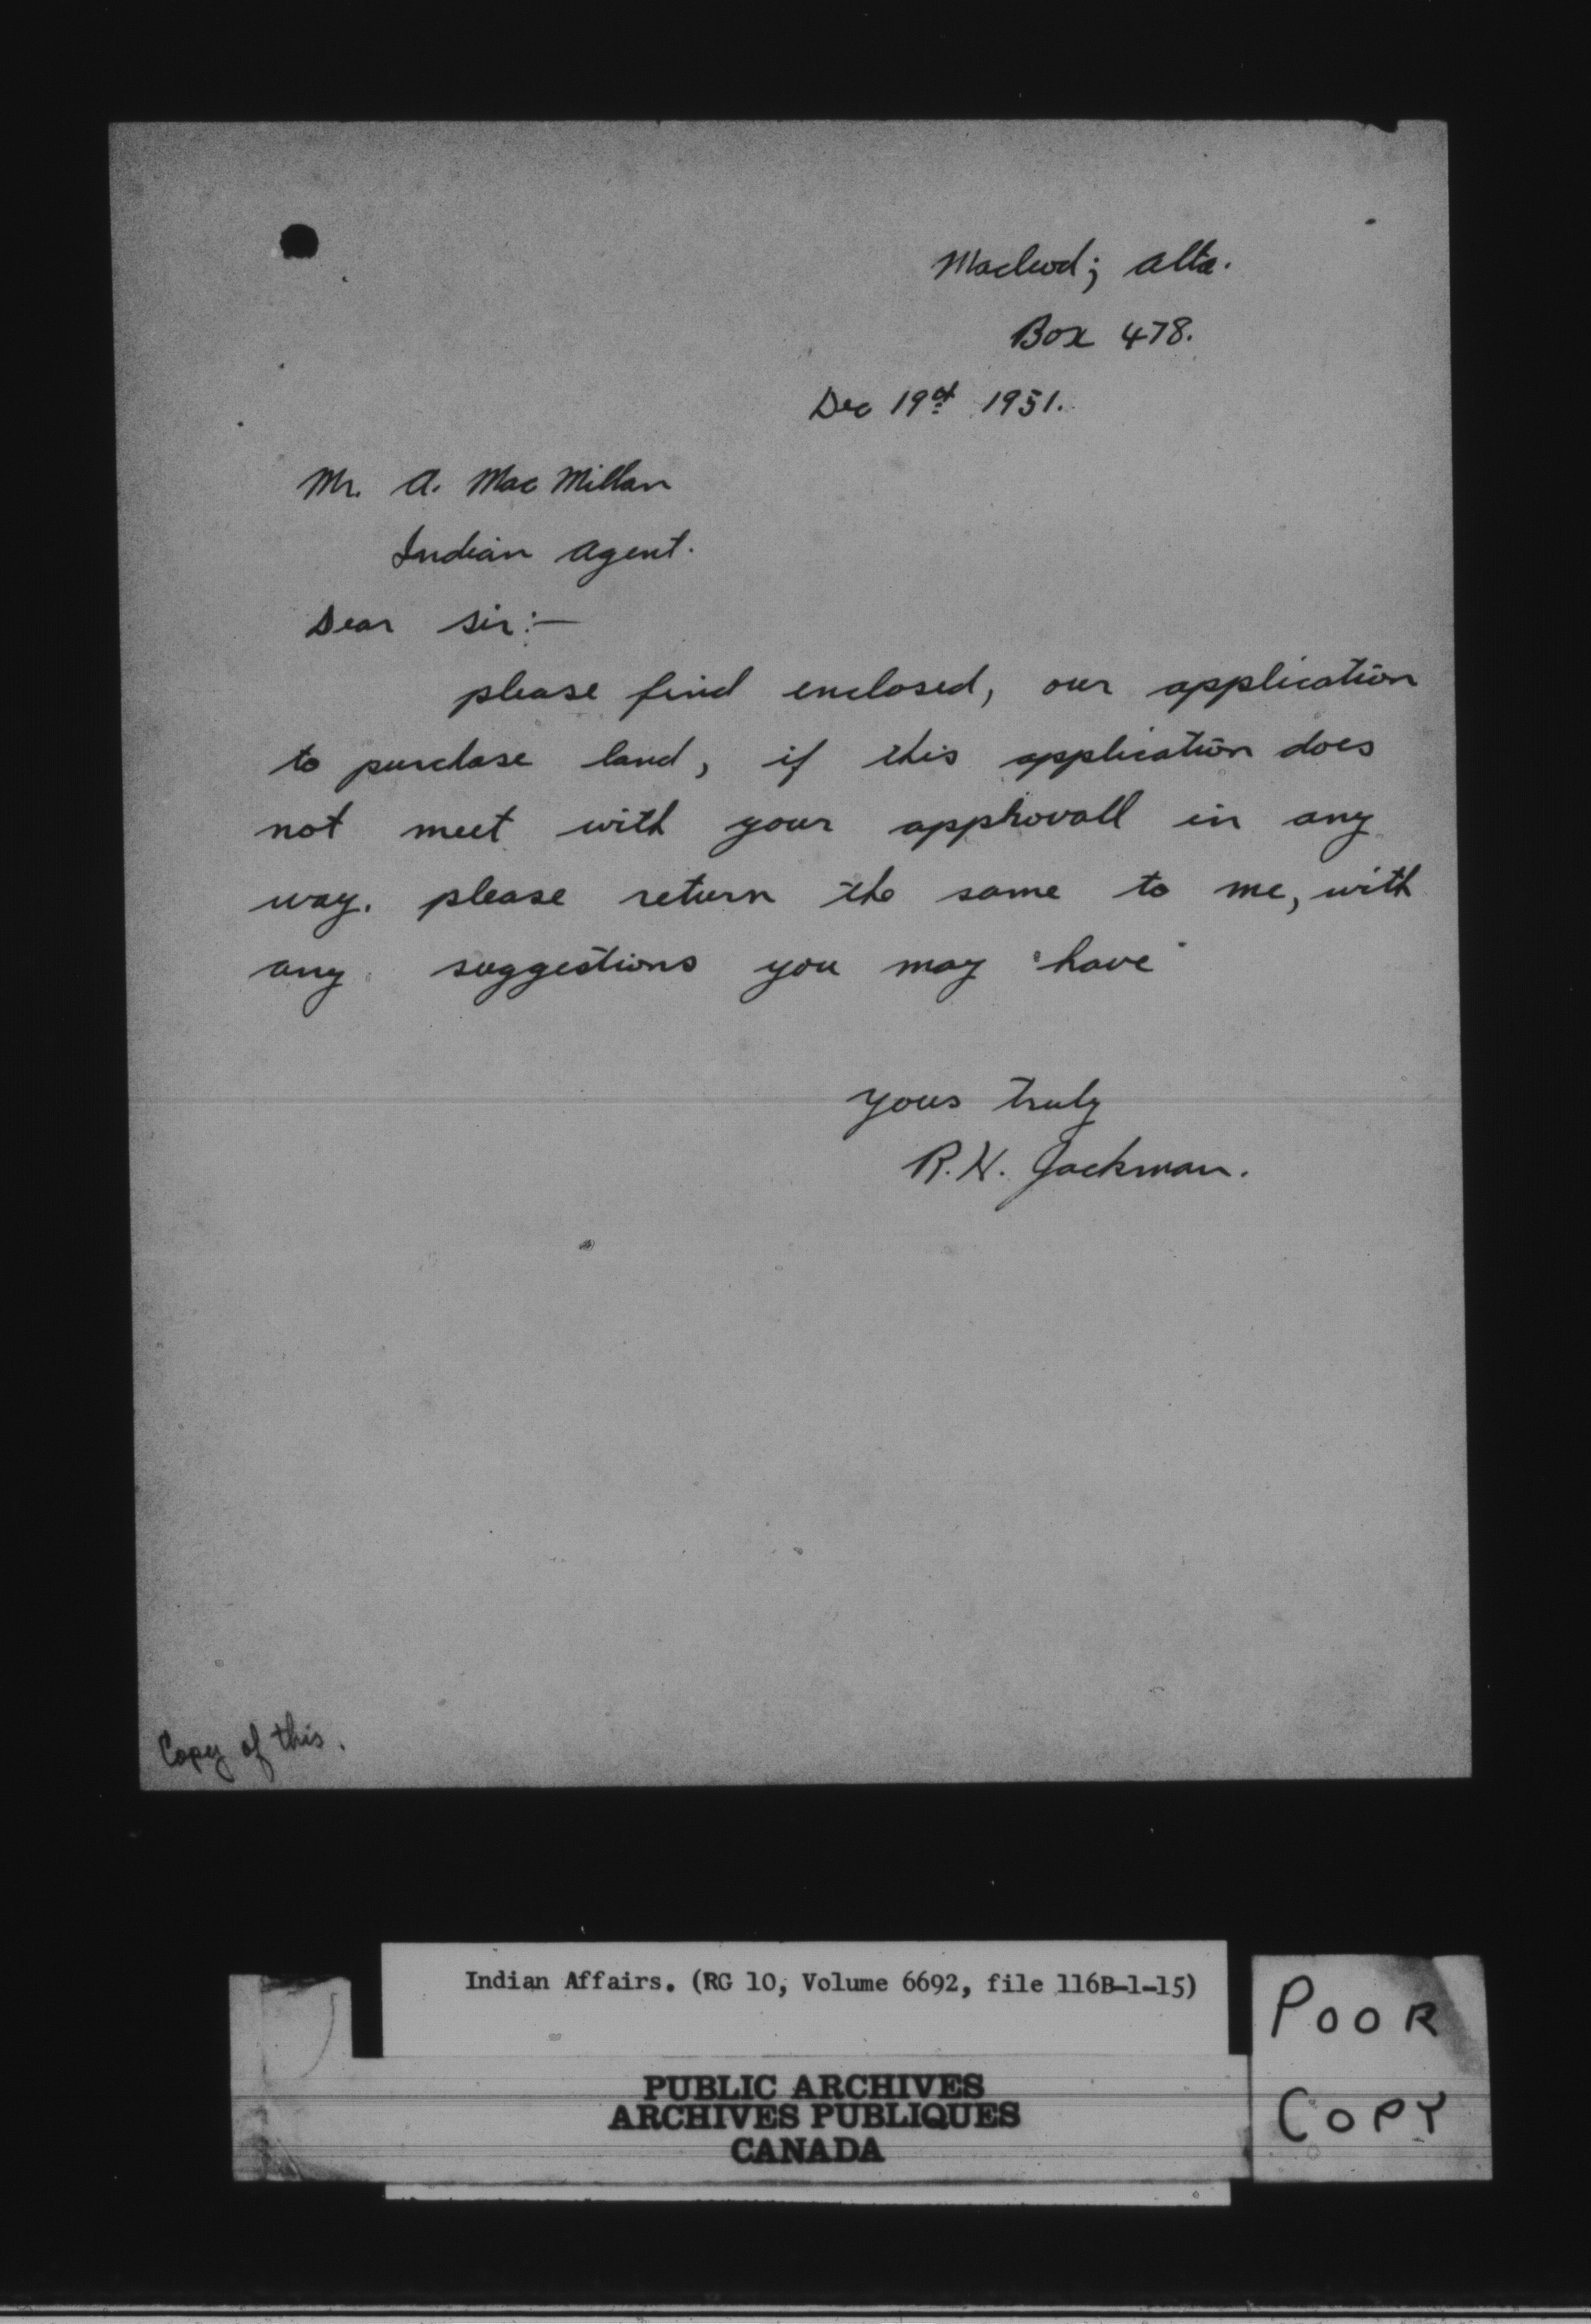 Macleod; Alta.
Box 478.
Dec 19st 1951.
Mr. A. Mac Millan
Indian Agent.
Dear Sir:—
please find enclosed, our application
to purchase land, if this application does
not meet with your approvall in any
way. please return the same to me, with
any suggestions you may have
yous truly
R.H. Jackman.
Copy of this.
Indian Affairs. (RG 10, Volume 6692, file 116B-1-15)
PUBLIC ARCHIVES
ARCHIVES PUBLIQUES
CANADA
POOR
COPY